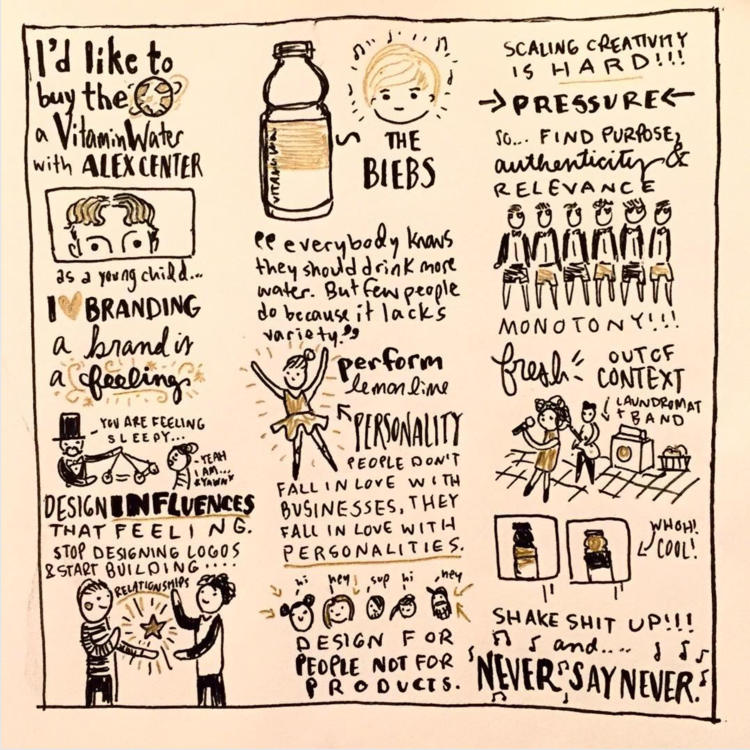 I'd like to
buy the
a VitaminWater
with ALEX CENTER
as a young child...
I BRANDING
a brand is
a feeling
YOU ARE FEELING
SLEEPY...
YEAH
I AM...
*YAWN*
DESIGN INFLUENCES
THAT FEELING.
STOP DESIGNING LOGOS
& START BUILDING....
RELATIONSHIPS
THE
BIEBS
"everybody knows
they should drink more
water. But few people
do because it lacks
variety."
perform
lemon lime
PERSONALITY
PEOPLE DON'T
FALL IN LOVE WITH
BUSINESSES, THEY
FALL IN LOVE WITH
PERSONALITIES.
hi hey! sup hi hey
DESIGN FOR
PEOPLE NOT FOR
PRODUCTS.
SCALING CREATIVITY
IS HARD!!!
→PRESSURE←
SO... FIND PURPOSE,
authenticity &
RELEVANCE
MONOTONY!!!
fresh OUT OF
CONTEXT
LAUNDROMAT
+ BAND
WHOH!
COOL!
SHAKE SHIT UP!!!
and....
NEVER SAY NEVER.